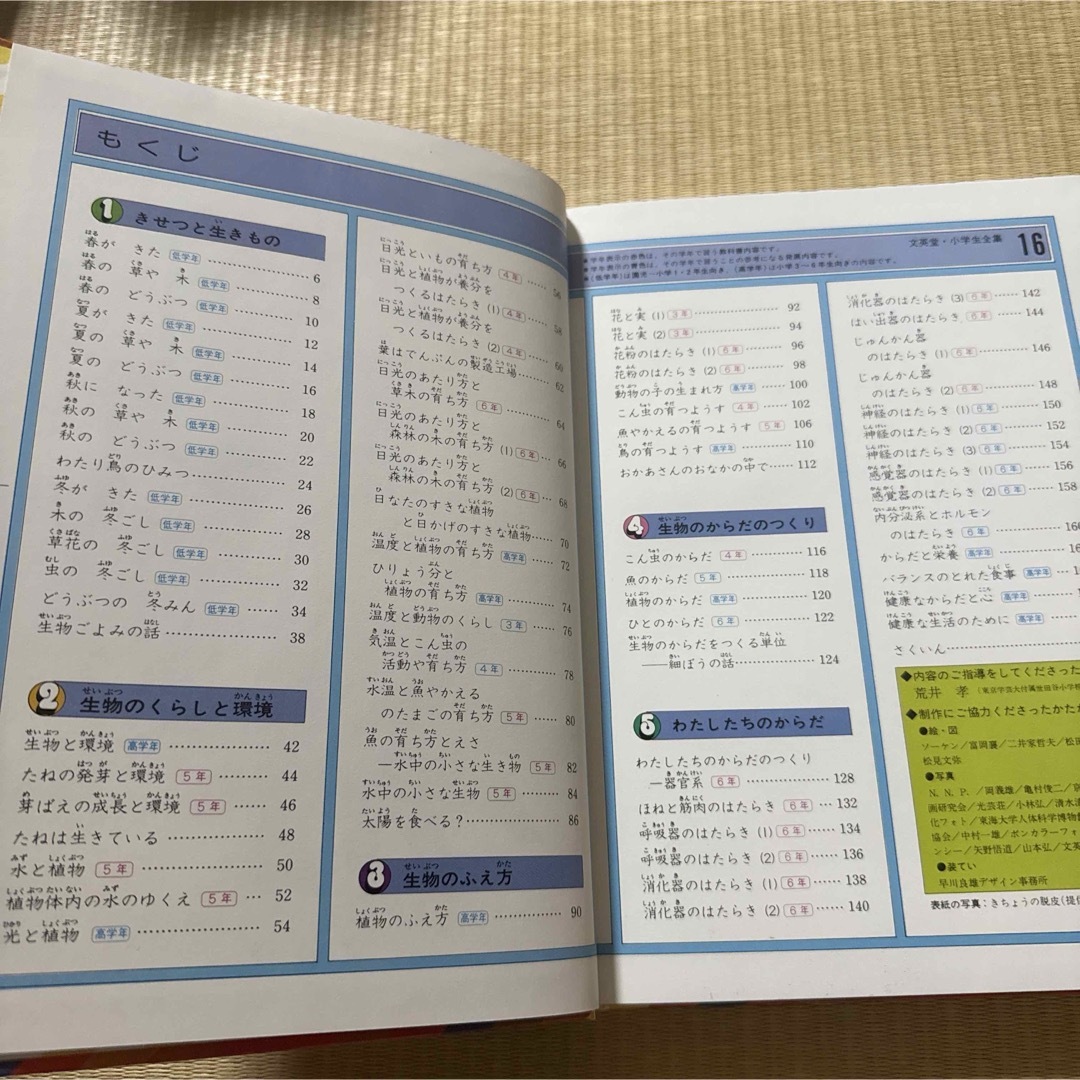 もくじ
1 きせつと生きもの
春が きた 低学年 6
春の 草や 木 低学年 8
春の どうぶつ 低学年 10
夏が きた 低学年 12
夏の 草や 木 低学年 14
夏の どうぶつ 低学年 16
秋に なった 低学年 18
秋の 草や 木 低学年 20
秋の どうぶつ 低学年 22
わたり鳥のひみつ 24
冬が きた 低学年 26
木の 冬ごし 低学年 28
草花の 冬ごし 低学年 30
虫の 冬ごし 低学年 32
どうぶつの 冬みん 低学年 34
生物ごよみの話 38
2 生物のくらしと環境
生物と環境 高学年 42
たねの発芽と環境 5年 44
芽ばえの成長と環境 5年 46
たねは生きている 48
水と植物 5年 50
植物体内の水のゆくえ 5年 52
光と植物 高学年 54
日光といもの育ち方 4年 56
日光と植物が養分を
つくるはたらき (1) 4年 58
日光と植物が養分を
つくるはたらき (2) 4年 60
葉はでんぷんの製造工場 62
日光のあたり方と
草木の育ち方 6年 64
日光のあたり方と
森林の木の育ち方 (1) 6年 66
日光のあたり方と
森林の木の育ち方 (2) 6年 68
日なたのすきな植物
と日かげのすきな植物 70
温度と植物の育ち方 高学年 72
ひりょう分と
植物の育ち方 高学年 74
温度と動物のくらし 3年 76
気温とこん虫の
活動や育ち方 4年 78
水温と魚やかえる
のたまごの育ち方 5年 80
魚の育ち方とえさ
—水中の小さな生き物 5年 82
水中の小さな生物 5年 84
太陽を食べる? 86
3 生物のふえ方
植物のふえ方 高学年 90
文英堂・小学生全集 16
花と実 (1) 3年 92
花と実 (2) 3年 94
花粉のはたらき (1) 6年 96
花粉のはたらき (2) 6年 98
動物の子の生まれ方 高学年 100
こん虫の育つようす 4年 102
魚やかえるの育つようす 5年 106
鳥の育つようす 高学年 110
おかあさんのおなかの中で 112
4 生物のからだのつくり
こん虫のからだ 4年 116
魚のからだ 5年 118
植物のからだ 高学年 120
ひとのからだ 6年 122
生物のからだをつくる単位
——細ぼうの話 124
5 わたしたちのからだ
わたしたちのからだのつくり
—器官系 6年 128
ほねと筋肉のはたらき 6年 132
呼吸器のはたらき (1) 6年 134
呼吸器のはたらき (2) 6年 136
消化器のはたらき (1) 6年 138
消化器のはたらき (2) 6年 140
消化器のはたらき (3) 6年 142
はい出器のはたらき 6年 144
じゅんかん器
のはたらき (1) 6年 146
じゅんかん器
のはたらき (2) 6年 148
神経のはたらき (1) 6年 150
神経のはたらき (2) 6年 152
神経のはたらき (3) 6年 154
感覚器のはたらき (1) 6年 156
感覚器のはたらき (2) 6年 158
内分泌系とホルモン
のはたらき 6年
からだと栄養 高学年
バランスのとれた食事 高学年
健康なからだと心 高学年
健康な生活のために 高学年
さくいん
◆内容のご指導をしてくださった
荒井 孝 (東京学芸大付属世田谷小学校
◆制作にご協力くださったかた
●絵・図
ソーケン/富岡襄/二井家哲夫/松田
松見文弥
●写真
N. N. P. /岡義雄/亀村俊二/京
画研究会/光芸荘/小林弘/清水清
化フォト/東海大学人体科学博物館
協会/中村一雄/ボンカラーフォ
ンシー/矢野悟道/山本弘/文英
●装てい
早川良雄デザイン事務所
表紙の写真:きちょうの脱皮(提供